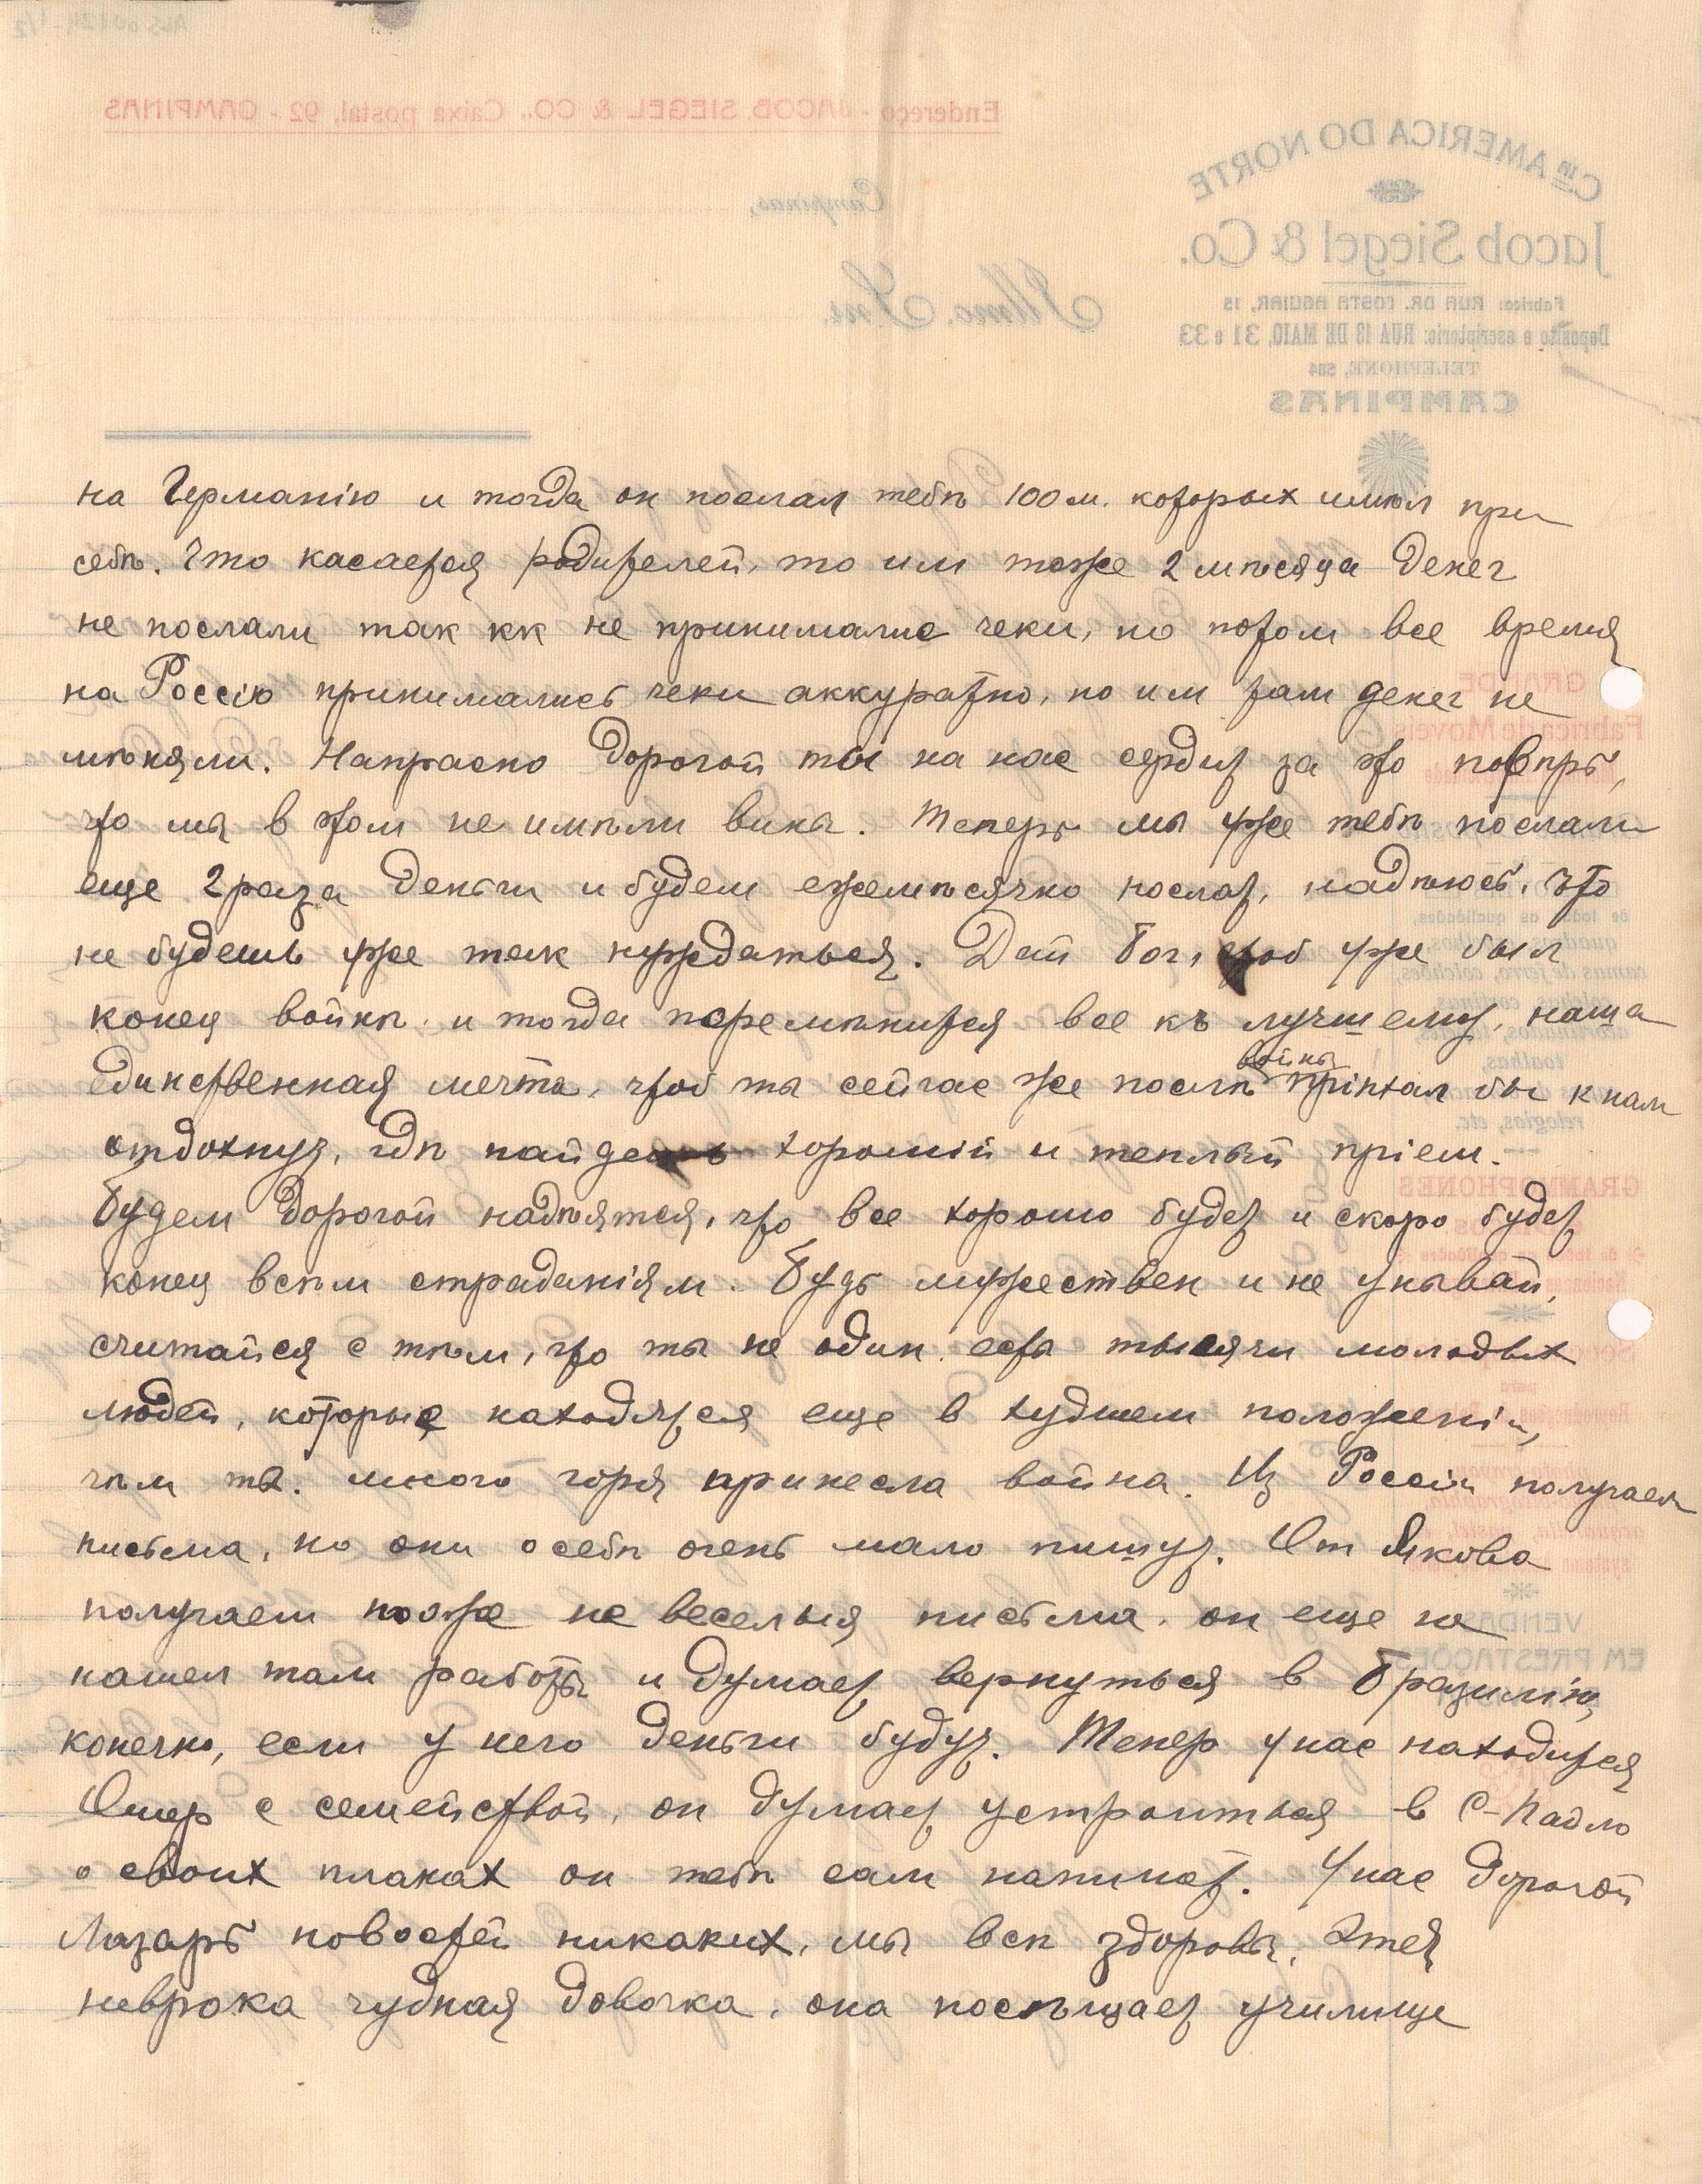 Endereço - JACOB SIEGEL & CO., Caixa postal, 92 - CAMPINAS
Cia AMERICA DO NORTE
Jacob Siegel & Co.
Fabrica: RUA DR. COSTA AGUIAR, 15
Deposito e escriptorio: RUA 13 DE MAIO, 31 e 33
TELEPHONE, 584
CAMPINAS
Campinas,
Illmo. Snr.
на Германію и тогда он послал тебѣ 100 м. которых имѣл при
себѣ. Что касается родителей, то им тоже 2 мѣсяца денег
не послали так кк не принималис чеки, но потом все время
на Россію принимались чеки аккуратно, но им там денег не
мѣняли. Напрасно дорогой ты на нас сердит за это повѣрь,
что мы в этом не имѣли вины. Теперь мы уже тебѣ послали
еще 2 раза деньги и будем ежемѣсячно послат, надѣюсь, что
не будешь уже так нуждаться. Дай Бог, чтоб уже был
конец войнѣ и тогда перемѣнится все къ лучшему, наша
единственная мечта, чтоб ты сейчас же послѣ войны пріѣхал бы к нам
отдохнут, гдѣ найдешь хорошій и теплый пріем.
Будем дорогой надѣятся, что все хорошо будет и скоро будет
конец всѣм страданіям. Будь мужествен и не унывай,
считайся с тѣм, что ты не один есть тысячи молодых
людей, которые находятся еще в худшем положеніи,
чѣм ты. много горя принесла война. Из Россіи получаем
письма, но они о себѣ очень мало пишут. От Якова
получаем тоже не веселыя письма, он еще не
нашел там работы и думает вернуться в Бразилію,
конечно, если у него деньги будут. Тепер у нас находится
Ошер с семейством, он думает устроиться в С-Пауло
о своих планах он тебѣ сам напишет. У нас дорогой
Лазарь новостей никаких, мы всѣ здоровы, Этея
неврока чудная довочка, она посѣщает училище
GRANDE
Fabrica de Moveis
de todas as qualidades,
camas de ferro, colchões,
toalhas,
relogios, etc.
GRAMOPHONES
VENDAS
EM PRESTAÇÕES